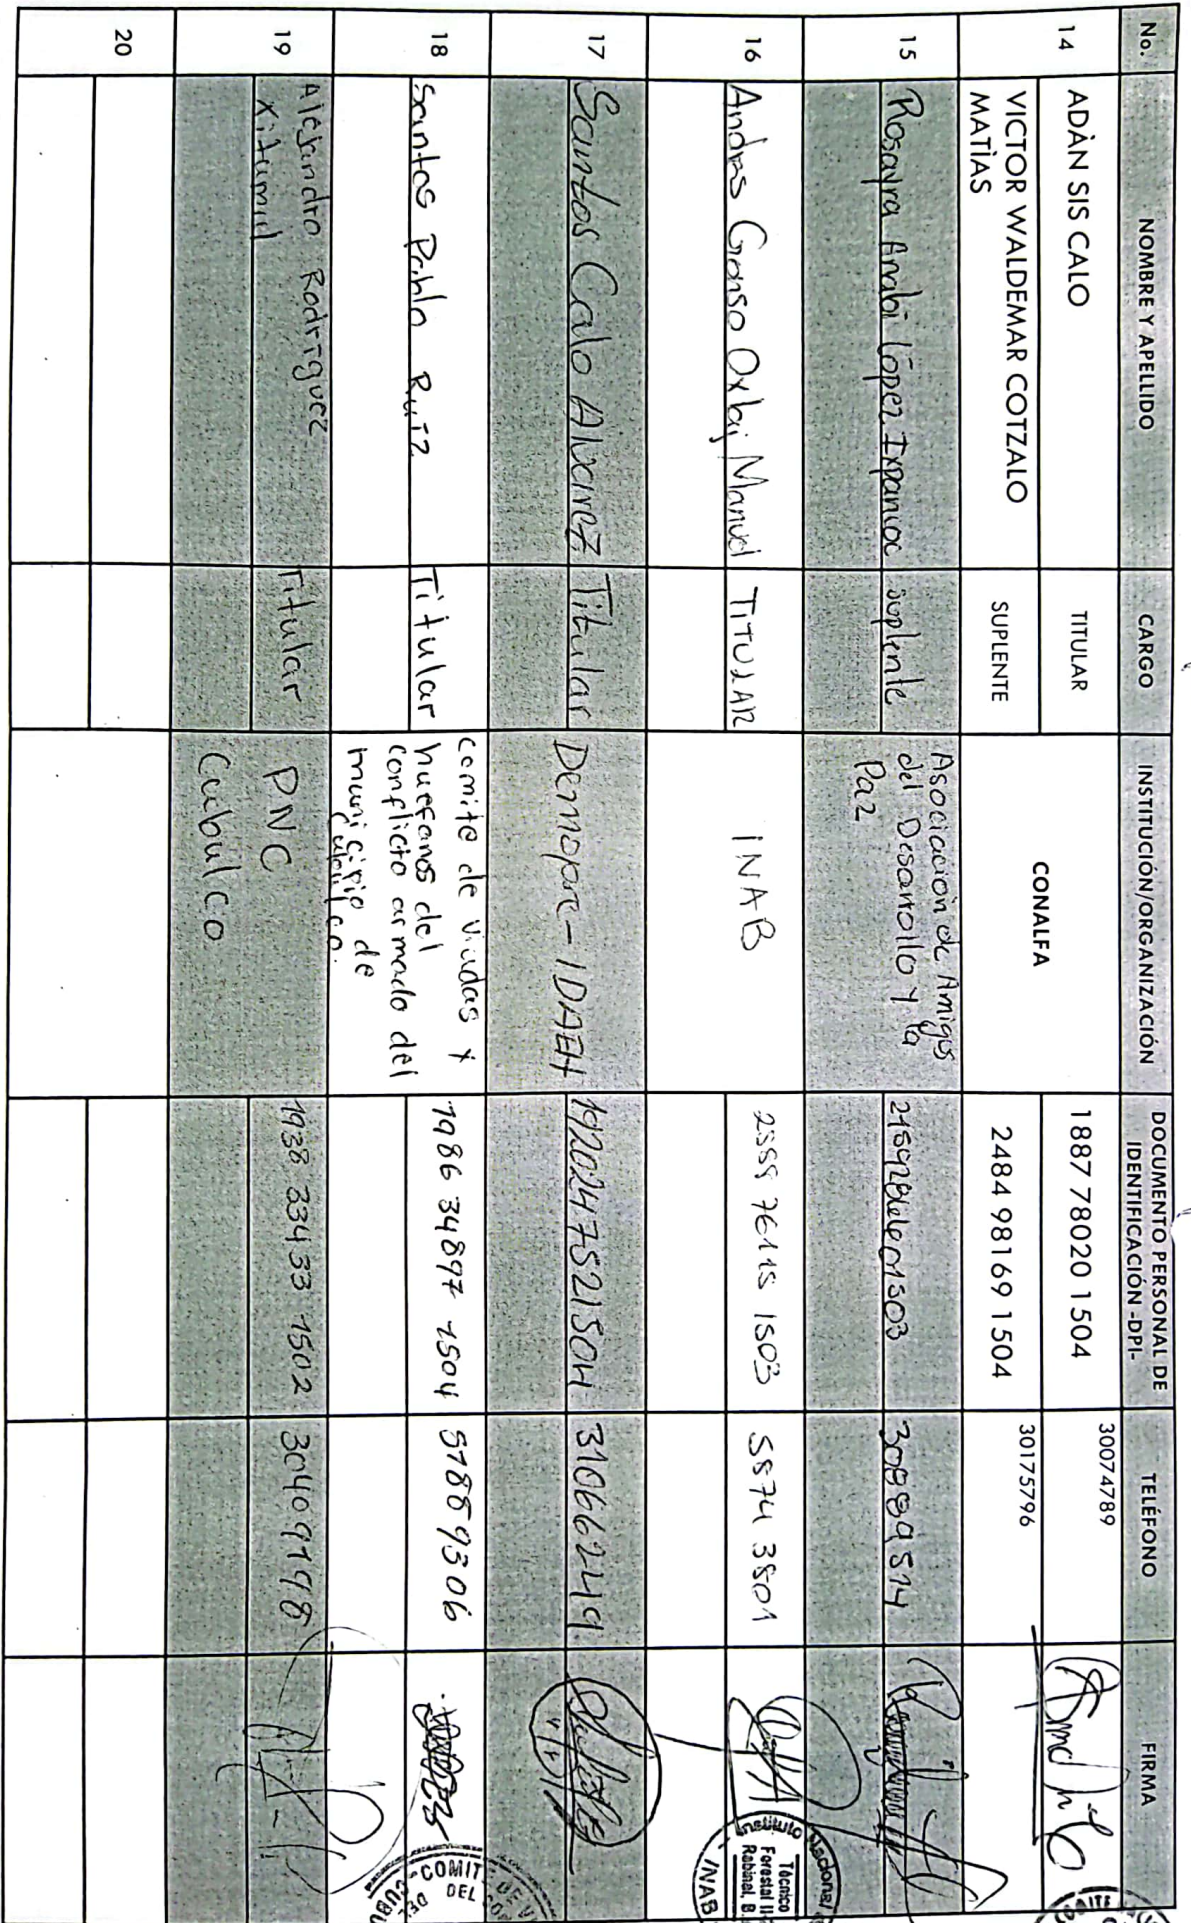 No. NOMBRE Y APELLIDO CARGO INSTITUCIÓN/ORGANIZACIÓN DOCUMENTO PERSONAL DE IDENTIFICACIÓN -DPI- TELÉFONO FIRMA
14 ADÀN SIS CALO TITULAR CONALFA 1887 78020 1504 30074789
VICTOR WALDEMAR COTZALO MATÌAS SUPLENTE 2484 98169 1504 30175796
15 Rosayra Anabi López Ixpancoc suplente Asociación de Amigos
del Desarrollo y la
Paz 30889514
16 Andres Oxlaj Manuel TITULAR INAB 2555 76115 1503 5574 3801
17 Santos Calo Alvarez Titular Demopre-IDAEH 1920247521504 31066249
18 Santos Pablo Ruiz Titular comite de viudas y
huefanos del
conflicto armado del
municipio de
Cubulco. 1986 34897 1504 5788 9306
19 Alejandro Rodriguez
Xitumul Titular PNC
Cubulco 1938 33433 1502 30409198
20
Instituto Nacional
Técnico
Forestal II
Rabinal, B.
INAB
COMIT DE VI
DEL